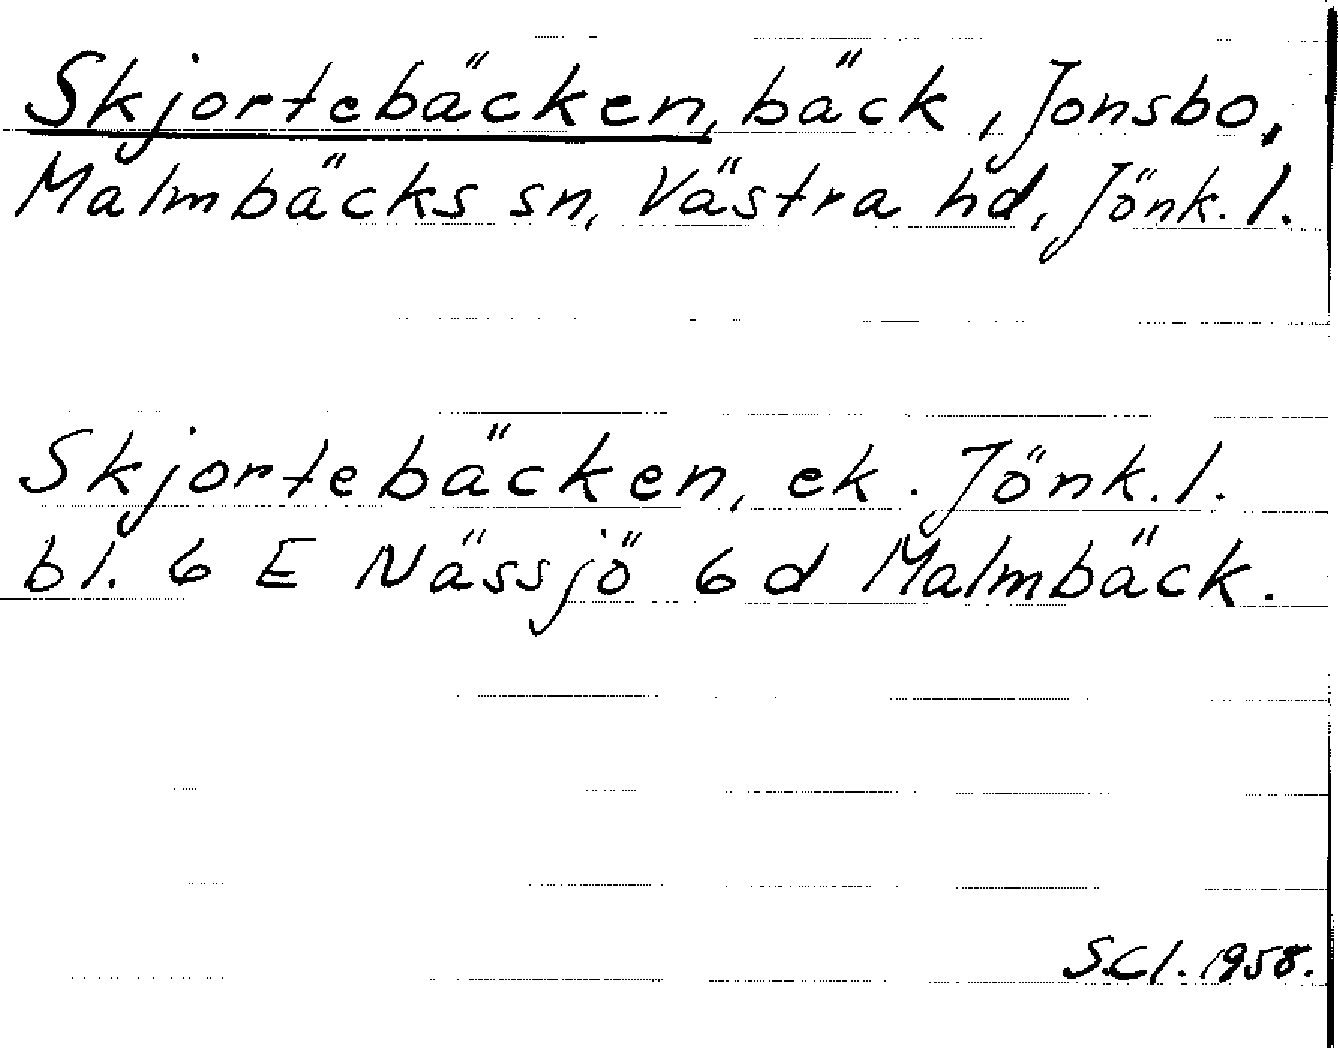 Skjortebäcken, bäck, Jonsbo,
Malmbäcks sn, Västra hd, Jönk. l.
Skjortebäcken, ek. Jönk. l.
bl. 6 E Nässjö 6 d Malmbäck.
S.Cl. 1958.